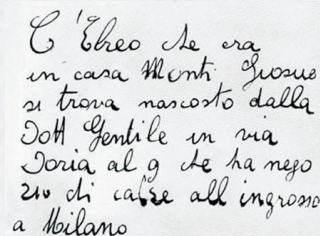 L'Ebreo che era
in casa Monti Giosuè
si trova nascosto dalla
Dott Gentile in via
Doria al 9 che ha nego
zio di calze all ingrosso
a Milano